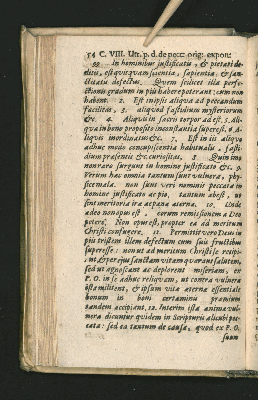 54 C. VIII. Ult. p. d. de pecc: orig: expon:
99 In hominibus justificatis, & pietati de-
ditis, est quæquam scientia, sapientia, & san-
ctitatis defectus. Quem scilicet illa perfe-
ctionis gradum in piis habere poterant, cum non
habent. 2. Est in ipsis aliqua ad peccandum
facilitas, 3. aliquod fastidium mysteriorum
&c. 4. Aliquis in sacro torpor ad est. 5. Ali-
qua in bono proposito inconstantia superest. 6. A-
liquis inordinatus &c. 7. Est in iis aliqua
adhuc mens concupiscentia habitualis, fasti-
dium præsentis & curiositas, 8. Quin imo
non raro surgunt in homine justificato &c. 9.
Verum hæc omnia tantum sunt vulnera, phy-
sice mala. non sunt veri nominis peccata in
homine justificato ac pio, tantum abest, ut
sint meritoria ira ac pœna æterna. 10. Unde
adeo non opus est, eorum remissionem a Deo
petere. Non opus est, propter ea ad meritum
Christi confugere. 11. Permittit vero Deus in
piis tristem illum defectum cum suis fructibus
superesse: non ut ad meritum Christi se recipi-
ant & per ejus sanctam vitam quærant salutem,
sed ut agnoscant ac deplorent miseriam, ex
P. O. in se adhuc reliquam, ut contra vulnera
ista militent, & ipsum vitæ æternæ essentiale
bonum in boni certaminis præmium
tandem accipiant. 12. Interim ista animæ vul-
nera dicuntur quidem in Scripturis alicubi pec-
cata: sed ea tantum de causa, quod ex P. O.
suam